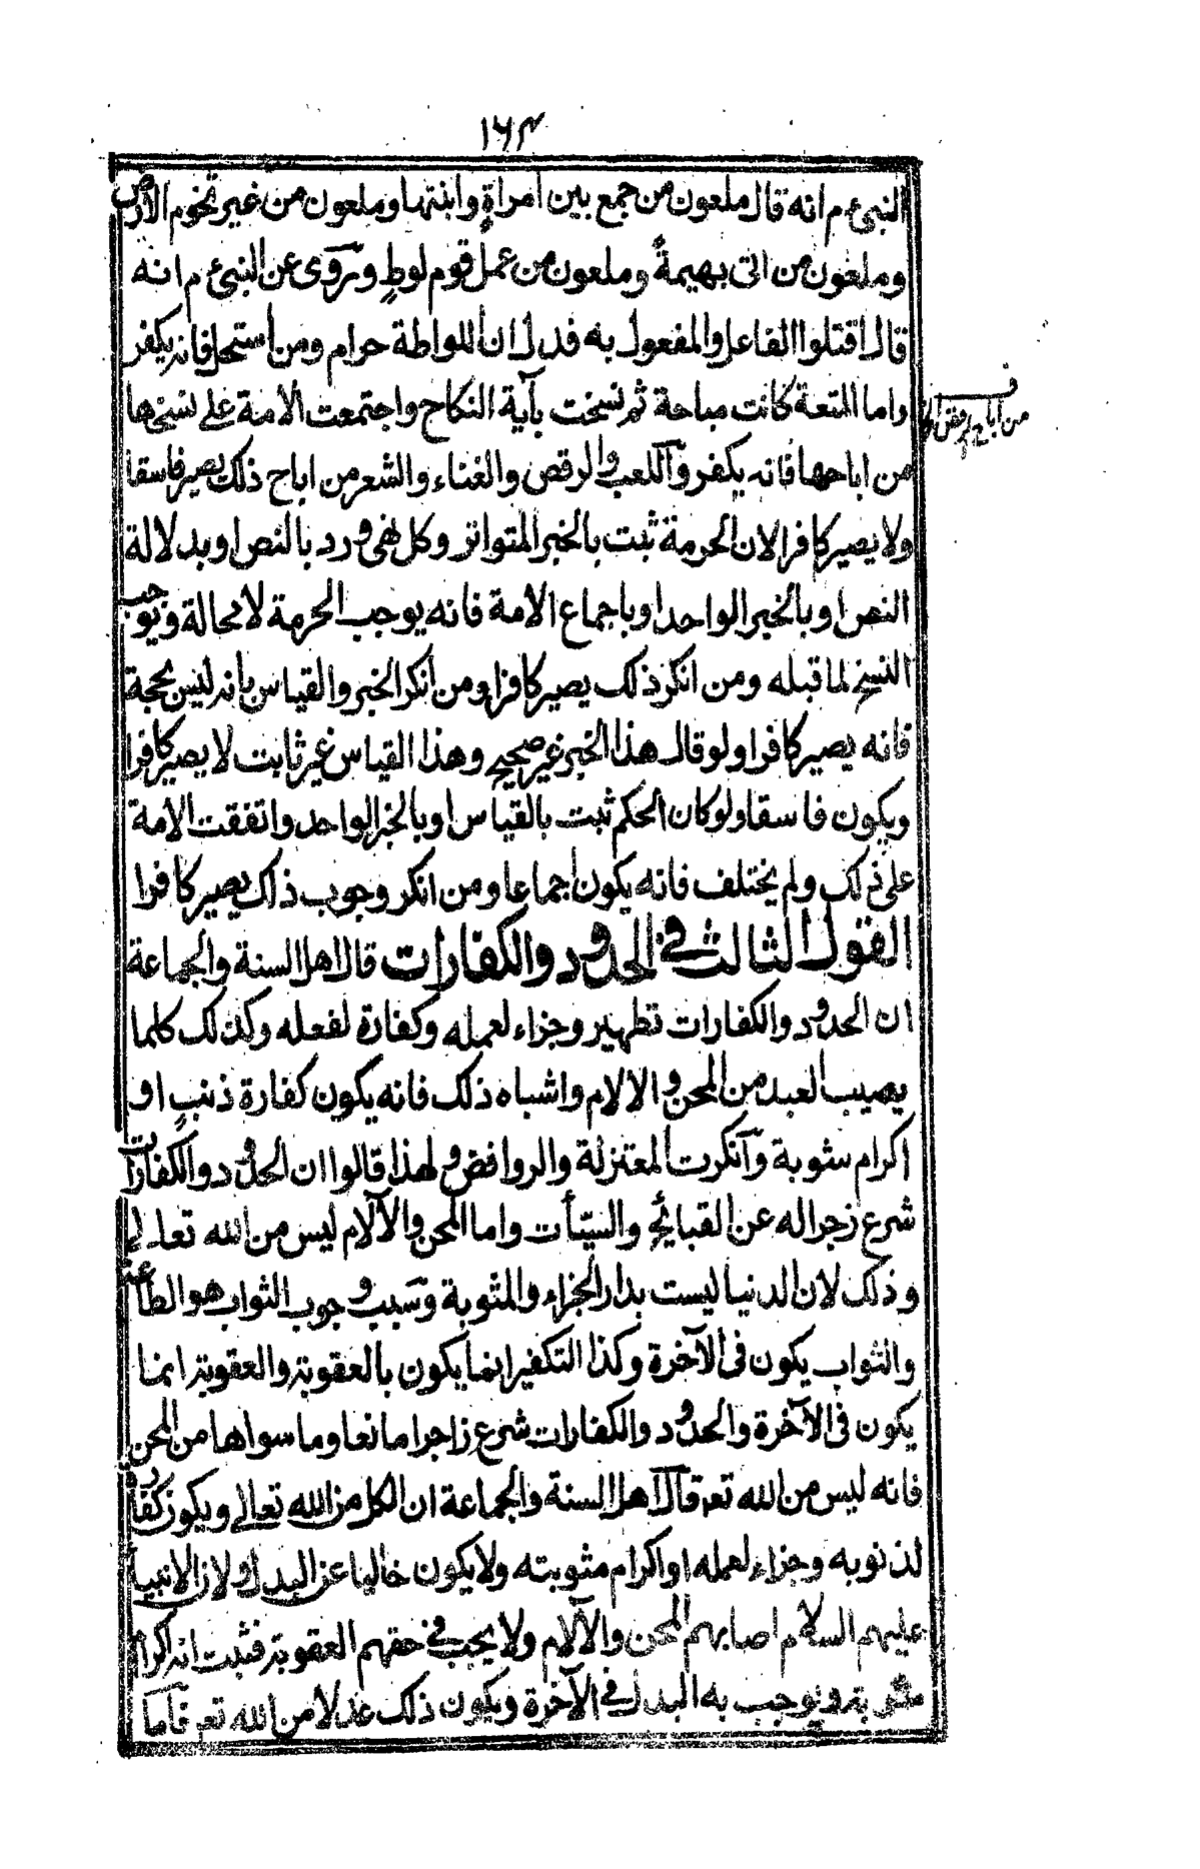 ١٦٤
النبي ءم انه قال ملعون من جمع بين امراةٍ وابنتها وملعون من غير تخوم الارض
وملعون من اتى بهيمةً وملعون من عمل قوم لوطٍ وروى عن النبي ءم انه
قال اقتلوا الفاعل والمفعول به فدل ان اللواطة حرام ومن استحل فانه يكفر
واما المتعة كانت مباحة ثم نسخت بآية النكاح واجتمعت الامة على نسخها
من اباحها فانه يكفر واللعب والرقص والغناء والشعر من اباح ذلك يصير فاسقا
ولا يصير كافرا لان الحرمة ثبت بالخبر المتواتر وكل نهى ورد بالنص او بدلالة
النص او بالخبر الواحد او باجماع الامة فانه يوجب الحرمة لا محالة ويوجب
النسخ لما قبله ومن انكر ذلك يصير كافرا ومن انكر الخبر والقياس بانه ليس بحجة
فانه يصير كافرا ولو قال هذا الخبر غير صحيح وهذا القياس غير ثابت لا يصير كافرا
ويكون فاسقا ولو كان الحكم ثبت بالقياس او بالخبر الواحد واتفقت الامة
على ذلك ولم يختلف فانه يكون اجماعا ومن انكر وجوب ذلك يصير كافرا
القول الثالث في الحدود والكفارات قال اهل السنة والجماعة
ان الحدود والكفارات تطهير وجزاء لعمله وكفارة لفعله وكذلك كلما
يصيب العبد من المحن والالام واشباه ذلك فانه يكون كفارة ذنبٍ او
اكرام مثوبة وانكرت المعتزلة والروافض ولهذا قالوا ان الحدود والكفارات
شرع زجرا له عن القبائح والسيّأت واما المحن والآلام ليس من الله تعالى
وذلك لان الدنيا ليست بدار الجزاء والمثوبة وسبب وجوب الثواب هو الطاعة
والثواب يكون في الآخرة وكذا التكفير انما يكون بالعقوبة والعقوبة انما
يكون في الآخرة والحدود والكفارات شرع زاجرا مانعا وما سواها من المحن
فانه ليس من الله تعم قال اهل السنة والجماعة ان الكل من الله تعالى ويكون كفارة
لذنوبه وجزاء لعمله او اكرام مثوبته ولا يكون خاليا عن البدل ولان الانبياء
عليهم السلام اصابهم المحن والآلام ولا يجب في حقهم العقوبة فثبت انه اكرام
مثوبة ويوجب به البدل في الآخرة ويكون ذلك عدلا من الله تعم فاما
من اباح الرقص